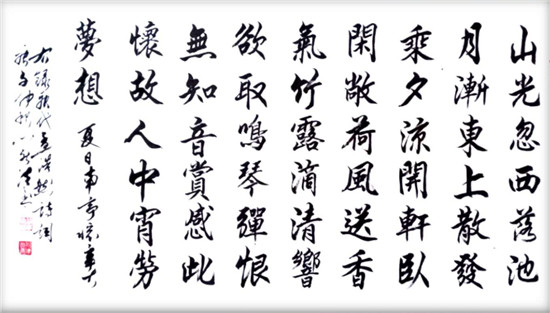 山光忽西落池
月漸東上散發
乘夕涼開軒臥
閑敞荷風送香
氣竹露滴清響
欲取鳴琴彈恨
無知音賞感此
懷故人中宵勞
夢想 夏日南亭懷辛大
右錄唐代孟浩然詩詞